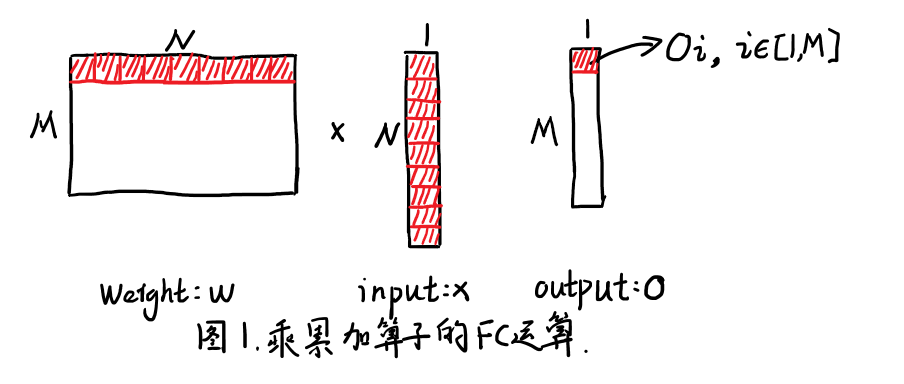 N
M
×
1
N
1
M
Oi, i∈[1,M]
weight: w
input: x
output: O
图1.乘累加算子的FC运算.